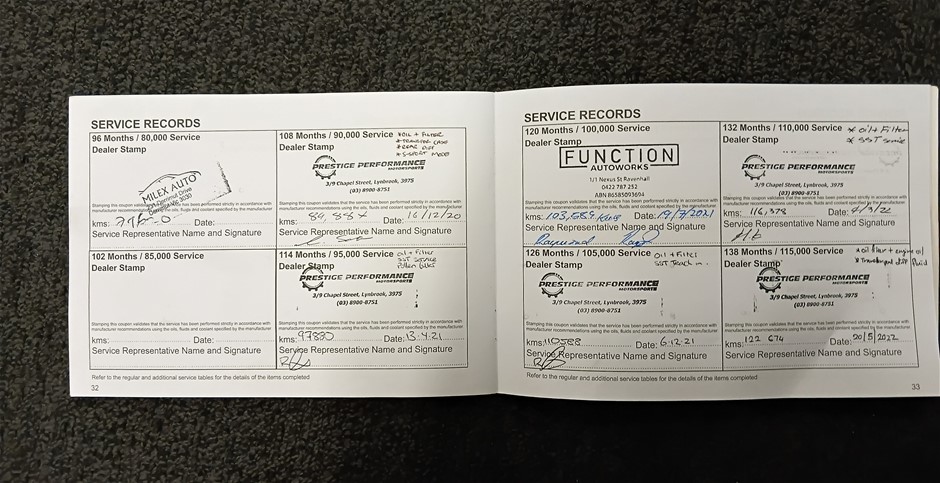 SERVICE RECORDS
96 Months / 80,000 Service
Dealer Stamp
MILEX AUTO
Stamping this coupon validates that the service has been performed strictly in accordance with
manufacturer recommendations using the oils, fluids and coolant specified by the manufacturer
kms: Date:
Service Representative Name and Signature
108 Months / 90,000 Service
Dealer Stamp
* OIL + FILTER
* TRANSFER CASE
* REAR DIFF
* S-SPORT MODE
PRESTIGE PERFORMANCE
MOTORSPORTS
3/9 Chapel Street, Lynbrook, 3975
(03) 8900-8751
Stamping this coupon validates that the service has been performed strictly in accordance with
manufacturer recommendations using the oils, fluids and coolant specified by the manufacturer
kms: Date: 16/12/20
Service Representative Name and Signature
102 Months / 85,000 Service
Dealer Stamp
Stamping this coupon validates that the service has been performed strictly in accordance with
manufacturer recommendations using the oils, fluids and coolant specified by the manufacturer
kms: Date:
Service Representative Name and Signature
114 Months / 95,000 Service
Dealer Stamp
oil + Filter
SST Service
PRESTIGE PERFORMANCE
MOTORSPORTS
3/9 Chapel Street, Lynbrook, 3975
(03) 8900-8751
Stamping this coupon validates that the service has been performed strictly in accordance with
manufacturer recommendations using the oils, fluids and coolant specified by the manufacturer
kms: Date: 13.4.21
Service Representative Name and Signature
Refer to the regular and additional service tables for the details of the items completed
32
SERVICE RECORDS
120 Months / 100,000 Service
Dealer Stamp
FUNCTION
AUTOWORKS
1/1 Nexus St Ravenhall
0422 787 252
ABN 86585093694
Stamping this coupon validates that the service has been performed strictly in accordance with
manufacturer recommendations using the oils, fluids and coolant specified by the manufacturer
kms: 103,585 kms Date: 19/7/2021
Service Representative Name and Signature
Raymond
132 Months / 110,000 Service
Dealer Stamp
* oil + Filter
* SST Service
PRESTIGE PERFORMANCE
MOTORSPORTS
3/9 Chapel Street, Lynbrook, 3975
(03) 8900-8751
Stamping this coupon validates that the service has been performed strictly in accordance with
manufacturer recommendations using the oils, fluids and coolant specified by the manufacturer
kms: 116,378 Date: 4/3/22
Service Representative Name and Signature
126 Months / 105,000 Service
Dealer Stamp
Oil + Filter
SST
PRESTIGE PERFORMANCE
MOTORSPORTS
3/9 Chapel Street, Lynbrook, 3975
(03) 8900-8751
Stamping this coupon validates that the service has been performed strictly in accordance with
manufacturer recommendations using the oils, fluids and coolant specified by the manufacturer
kms: 110588 Date: 6.12.21
Service Representative Name and Signature
138 Months / 115,000 Service
Dealer Stamp
* oil filter + engine oil
PRESTIGE PERFORMANCE
MOTORSPORTS
3/9 Chapel Street, Lynbrook, 3975
(03) 8900-8751
Stamping this coupon validates that the service has been performed strictly in accordance with
manufacturer recommendations using the oils, fluids and coolant specified by the manufacturer
kms: 122 674 Date: 20/5/2022
Service Representative Name and Signature
Refer to the regular and additional service tables for the details of the items completed
33